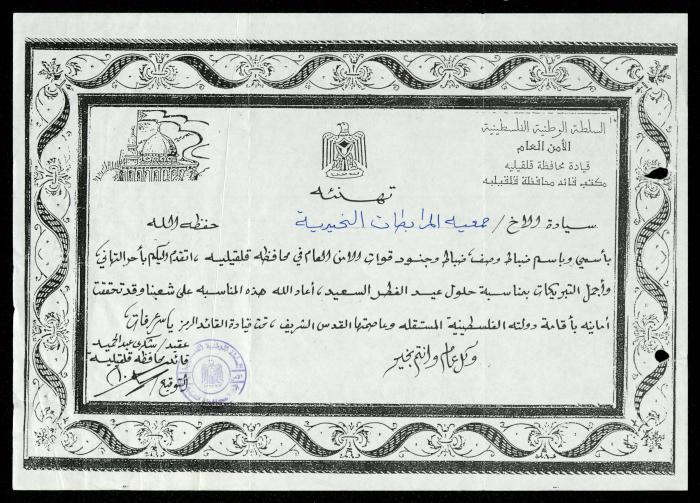 السلطة الوطنية الفلسطينية
الأمن العام
قيادة محافظة قلقيليه
مكتب قائد محافظة قلقيليه
تهنئه
سيادة الاخ / جمعيه المرابطات الخيرية حفظه الله
بأسمي وباسم ضباط وصف ضباط وجنود قوات الأمن العام في محافظة قلقيليه ، اتقدم اليكم بأحر التهاني
وأجمل التبريكات بمناسبة حلول عيد الفطر السعيد ، أعاد الله هذه المناسبه على شعبنا وقد تحققت
أمانيه بأقامة دولته الفلسطينية المستقله وعاصمتها القدس الشريف ، تحت قيادة القائد الرمز ياسر عرفات
وكل عام وانتم بخير
عقيد / شكري عبد المجيد
قائد محافظه قلقيليه
التوقيع /